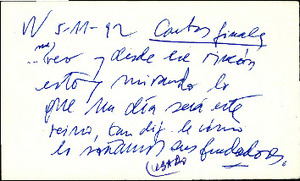 IV 5-11-92 Cantos finales
...veo y desde ese rincón
estoy mirando lo
que un día será este
reino, tan dif
lo soñamos sus fundadores.